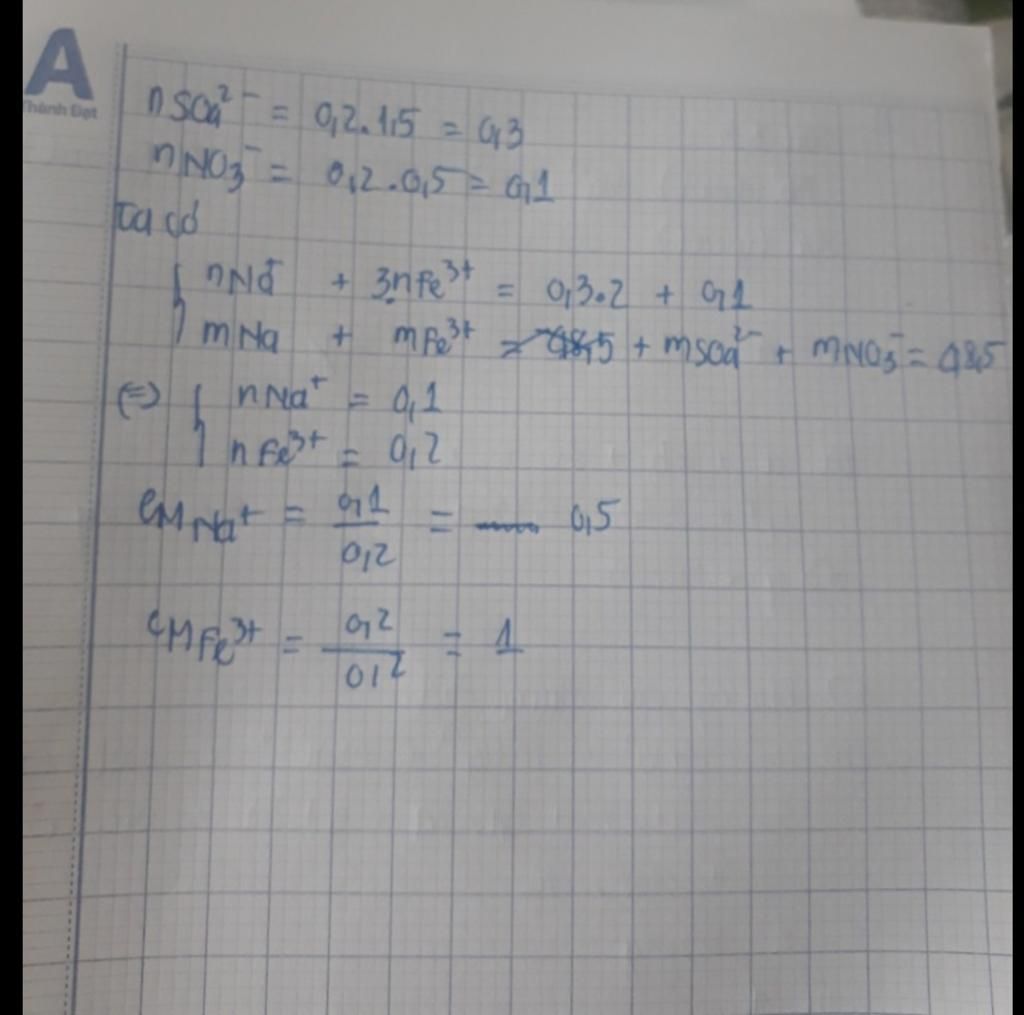 A
Thành Đạt
nSO₄²⁻ = 0,2.1,5 = 0,3
nNO₃⁻ = 0,2.0,5 = 0,1
Ta có
nNa⁺ + 3nFe³⁺ = 0,3.2 + 0,1
mNa + mFe³⁺ + mSO₄²⁻ + mNO₃⁻ =
(=) nNa⁺ = 0,1
nFe³⁺ = 0,2
CM Na⁺ = 0,1/0,2 = 0,5
CM Fe³⁺ = 0,2/0,2 = 1